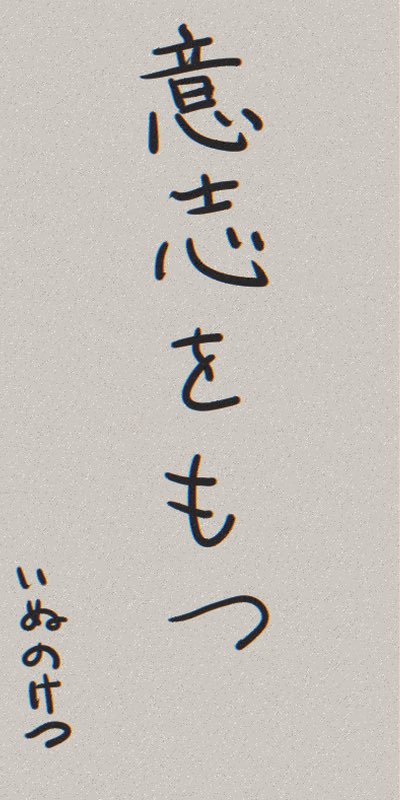 意志をもつ
いぬのけつ